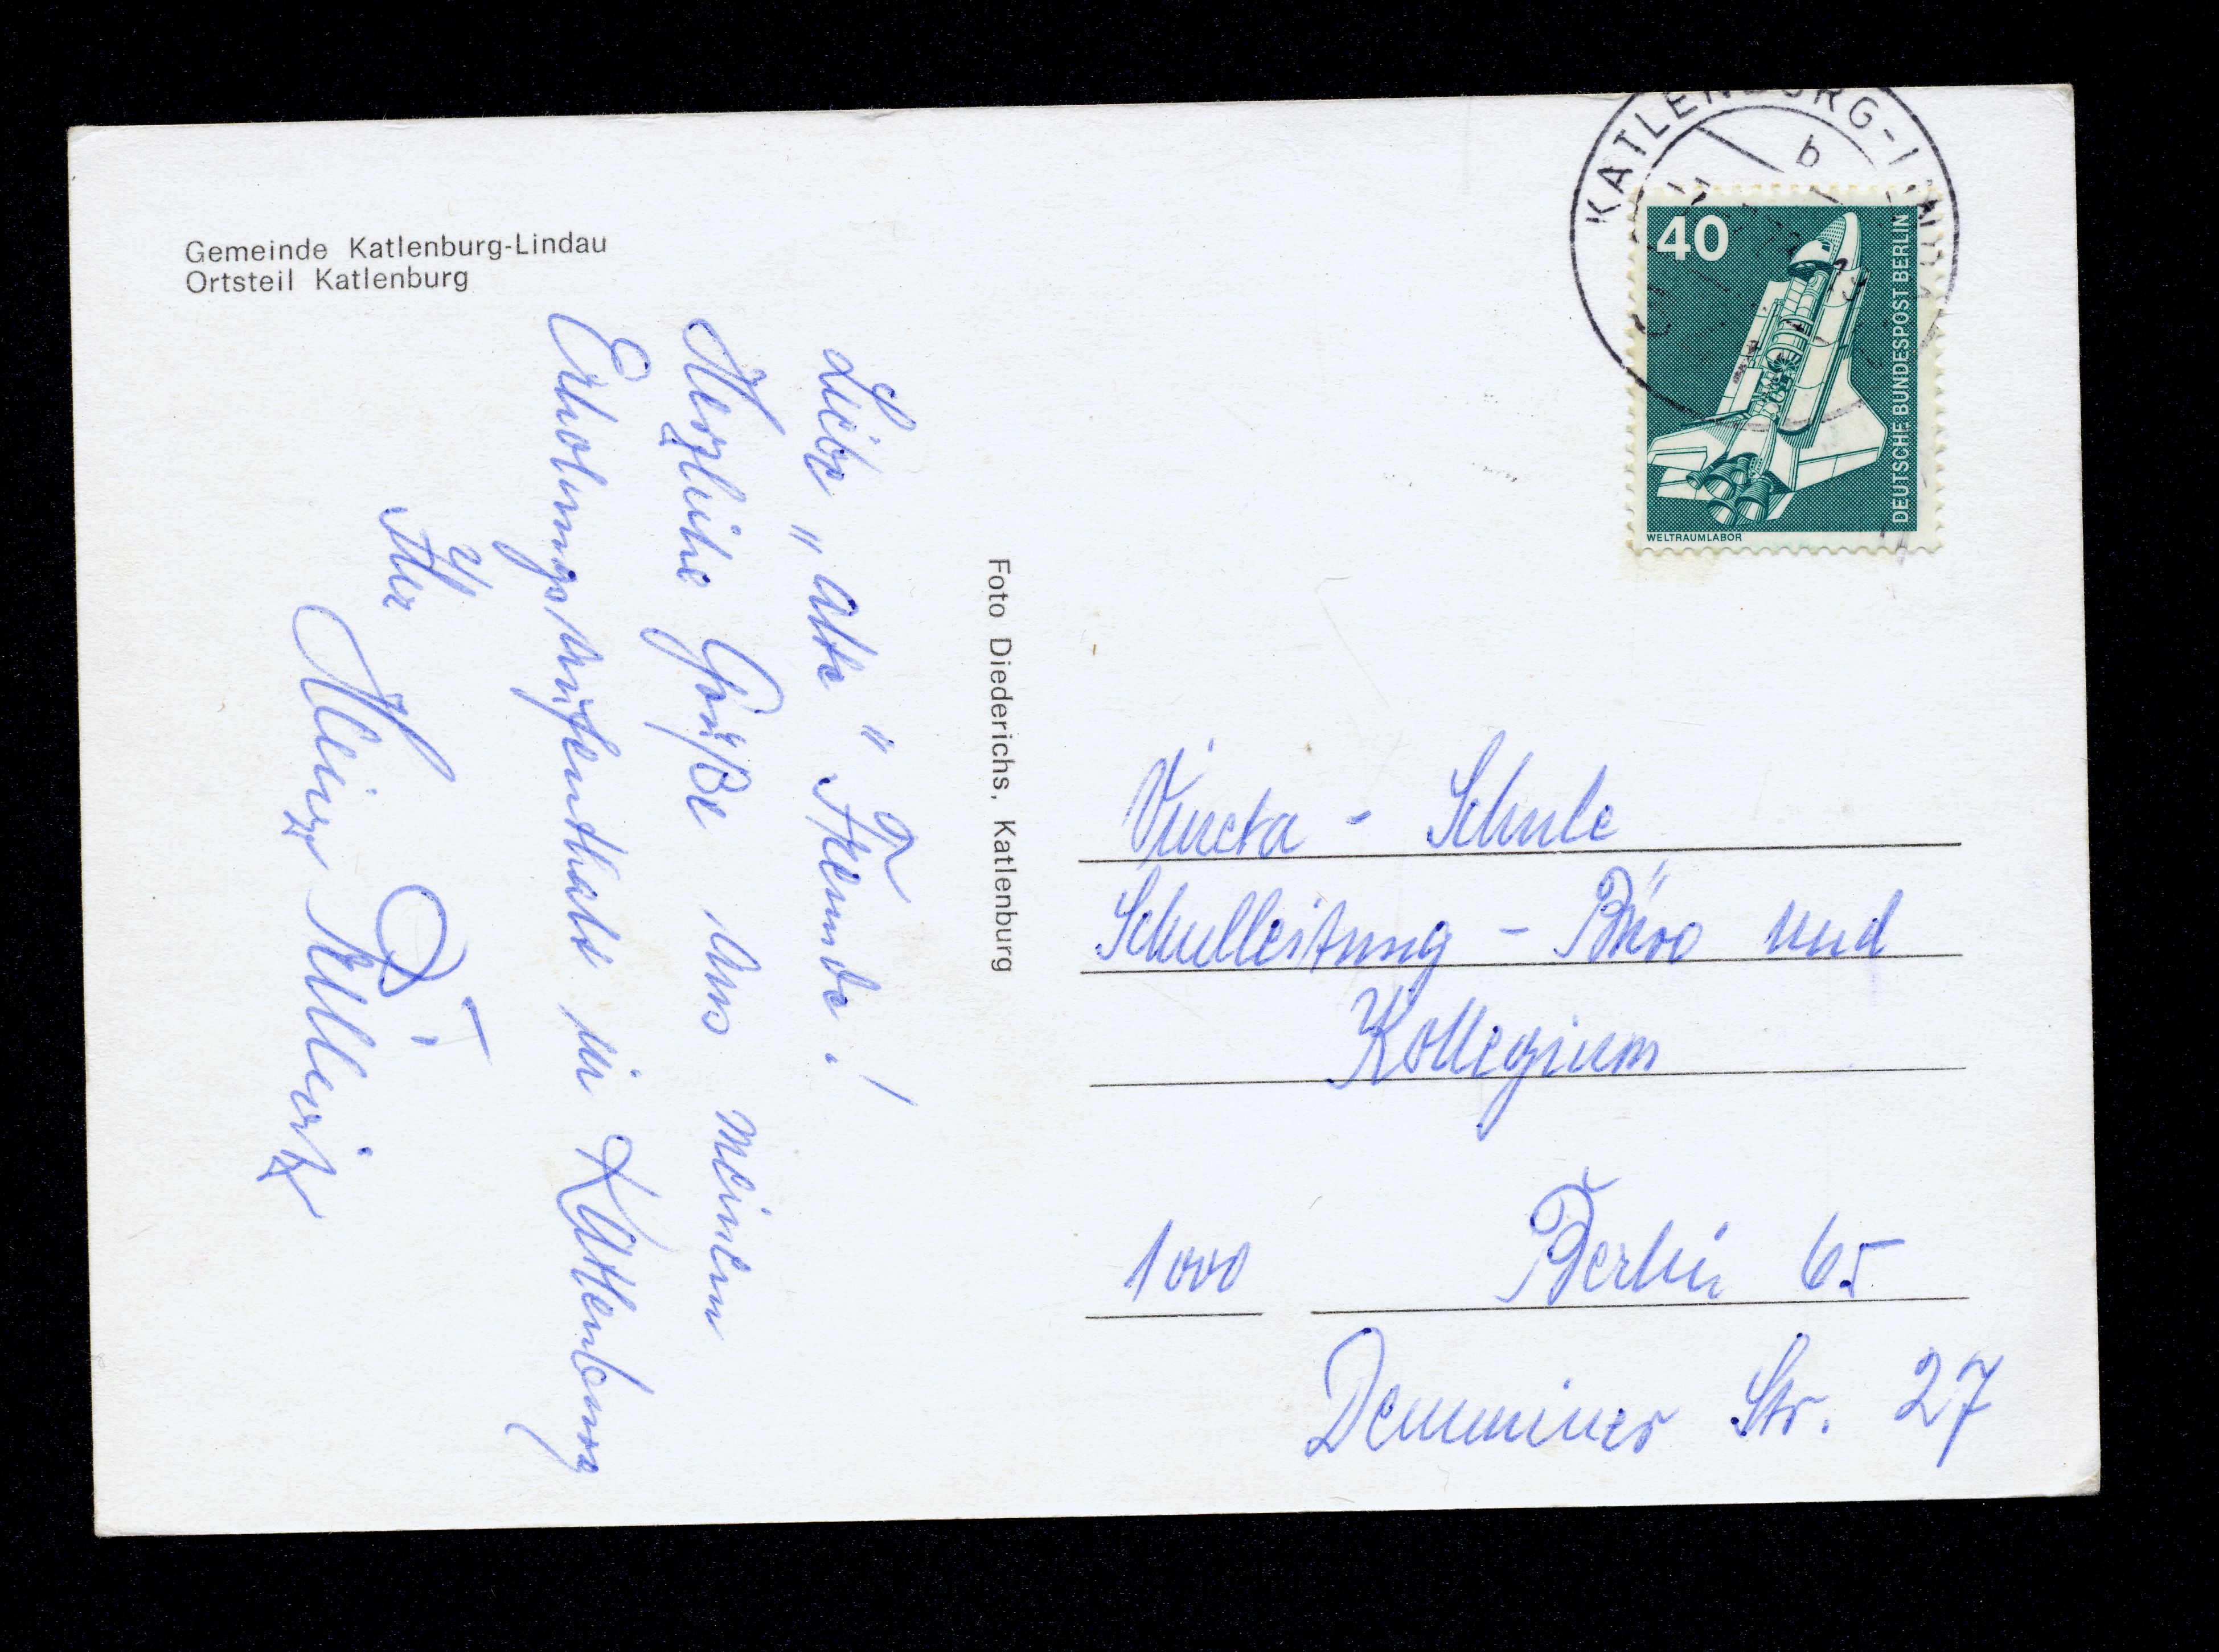 Gemeinde Katlenburg-Lindau
Ortsteil Katlenburg
Liebe "alte" Freunde!
Herzliche Grüße aus meinem
Erholungsaufenthalt in Katlenburg
Ihr
Heinz
Foto Diederichs, Katlenburg
KATLENBURG-LINDAU
b
40
DEUTSCHE BUNDESPOST BERLIN
WELTRAUMLABOR
Vineta - Schule
Schulleitung - Büro und
Kollegium
1000 Berlin 65
Demminer Str. 27